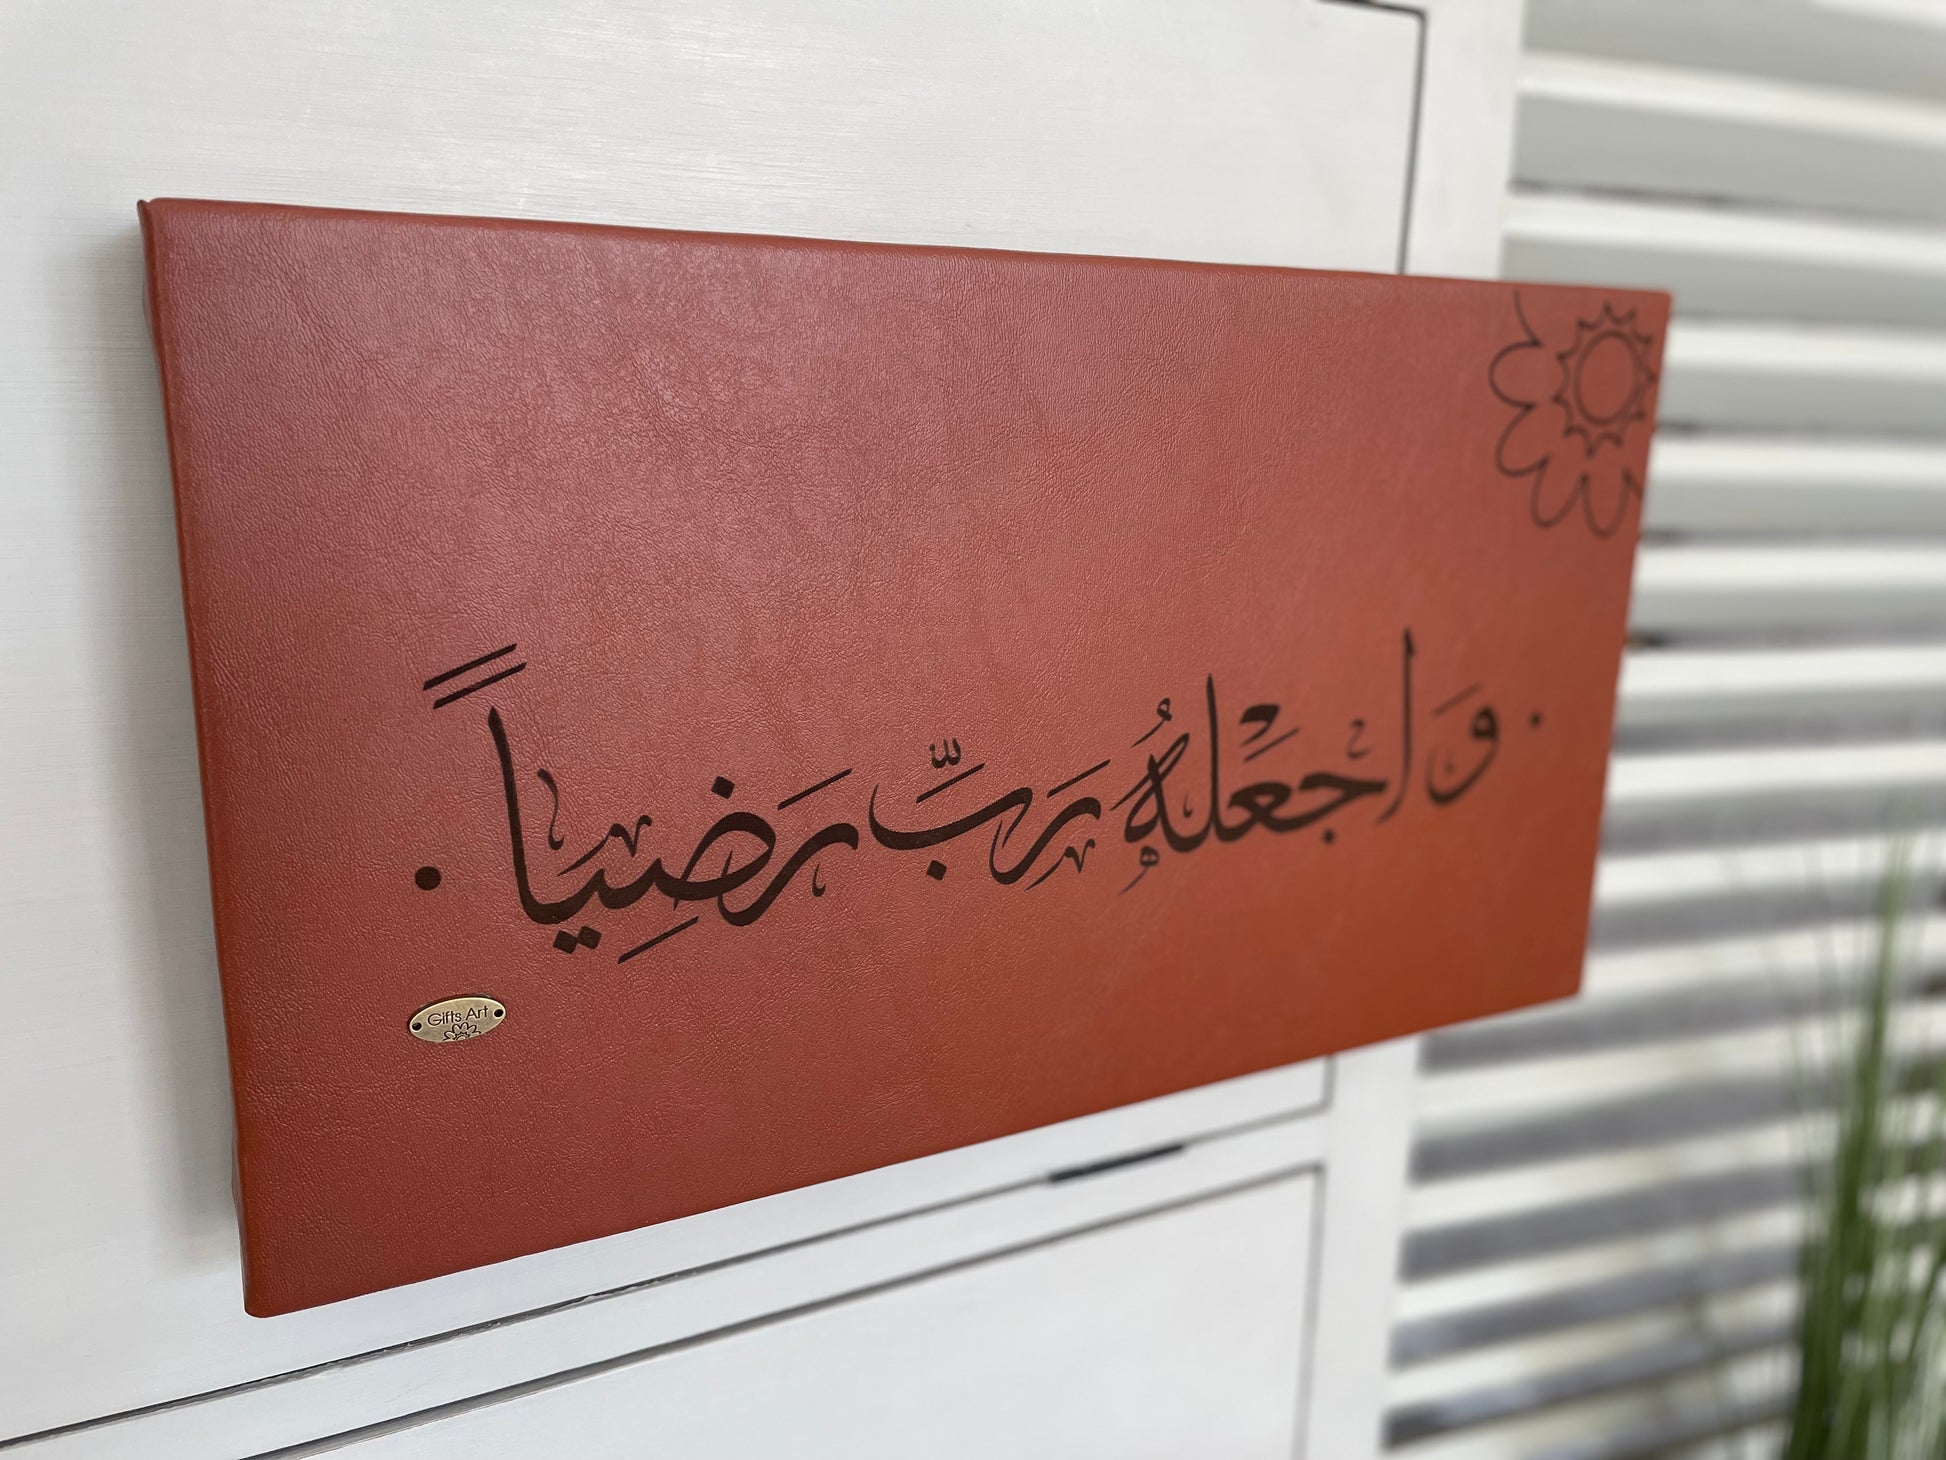 . وَاجْعَلْهُ رَبِّ رَضِيَاً .
Gifts Art